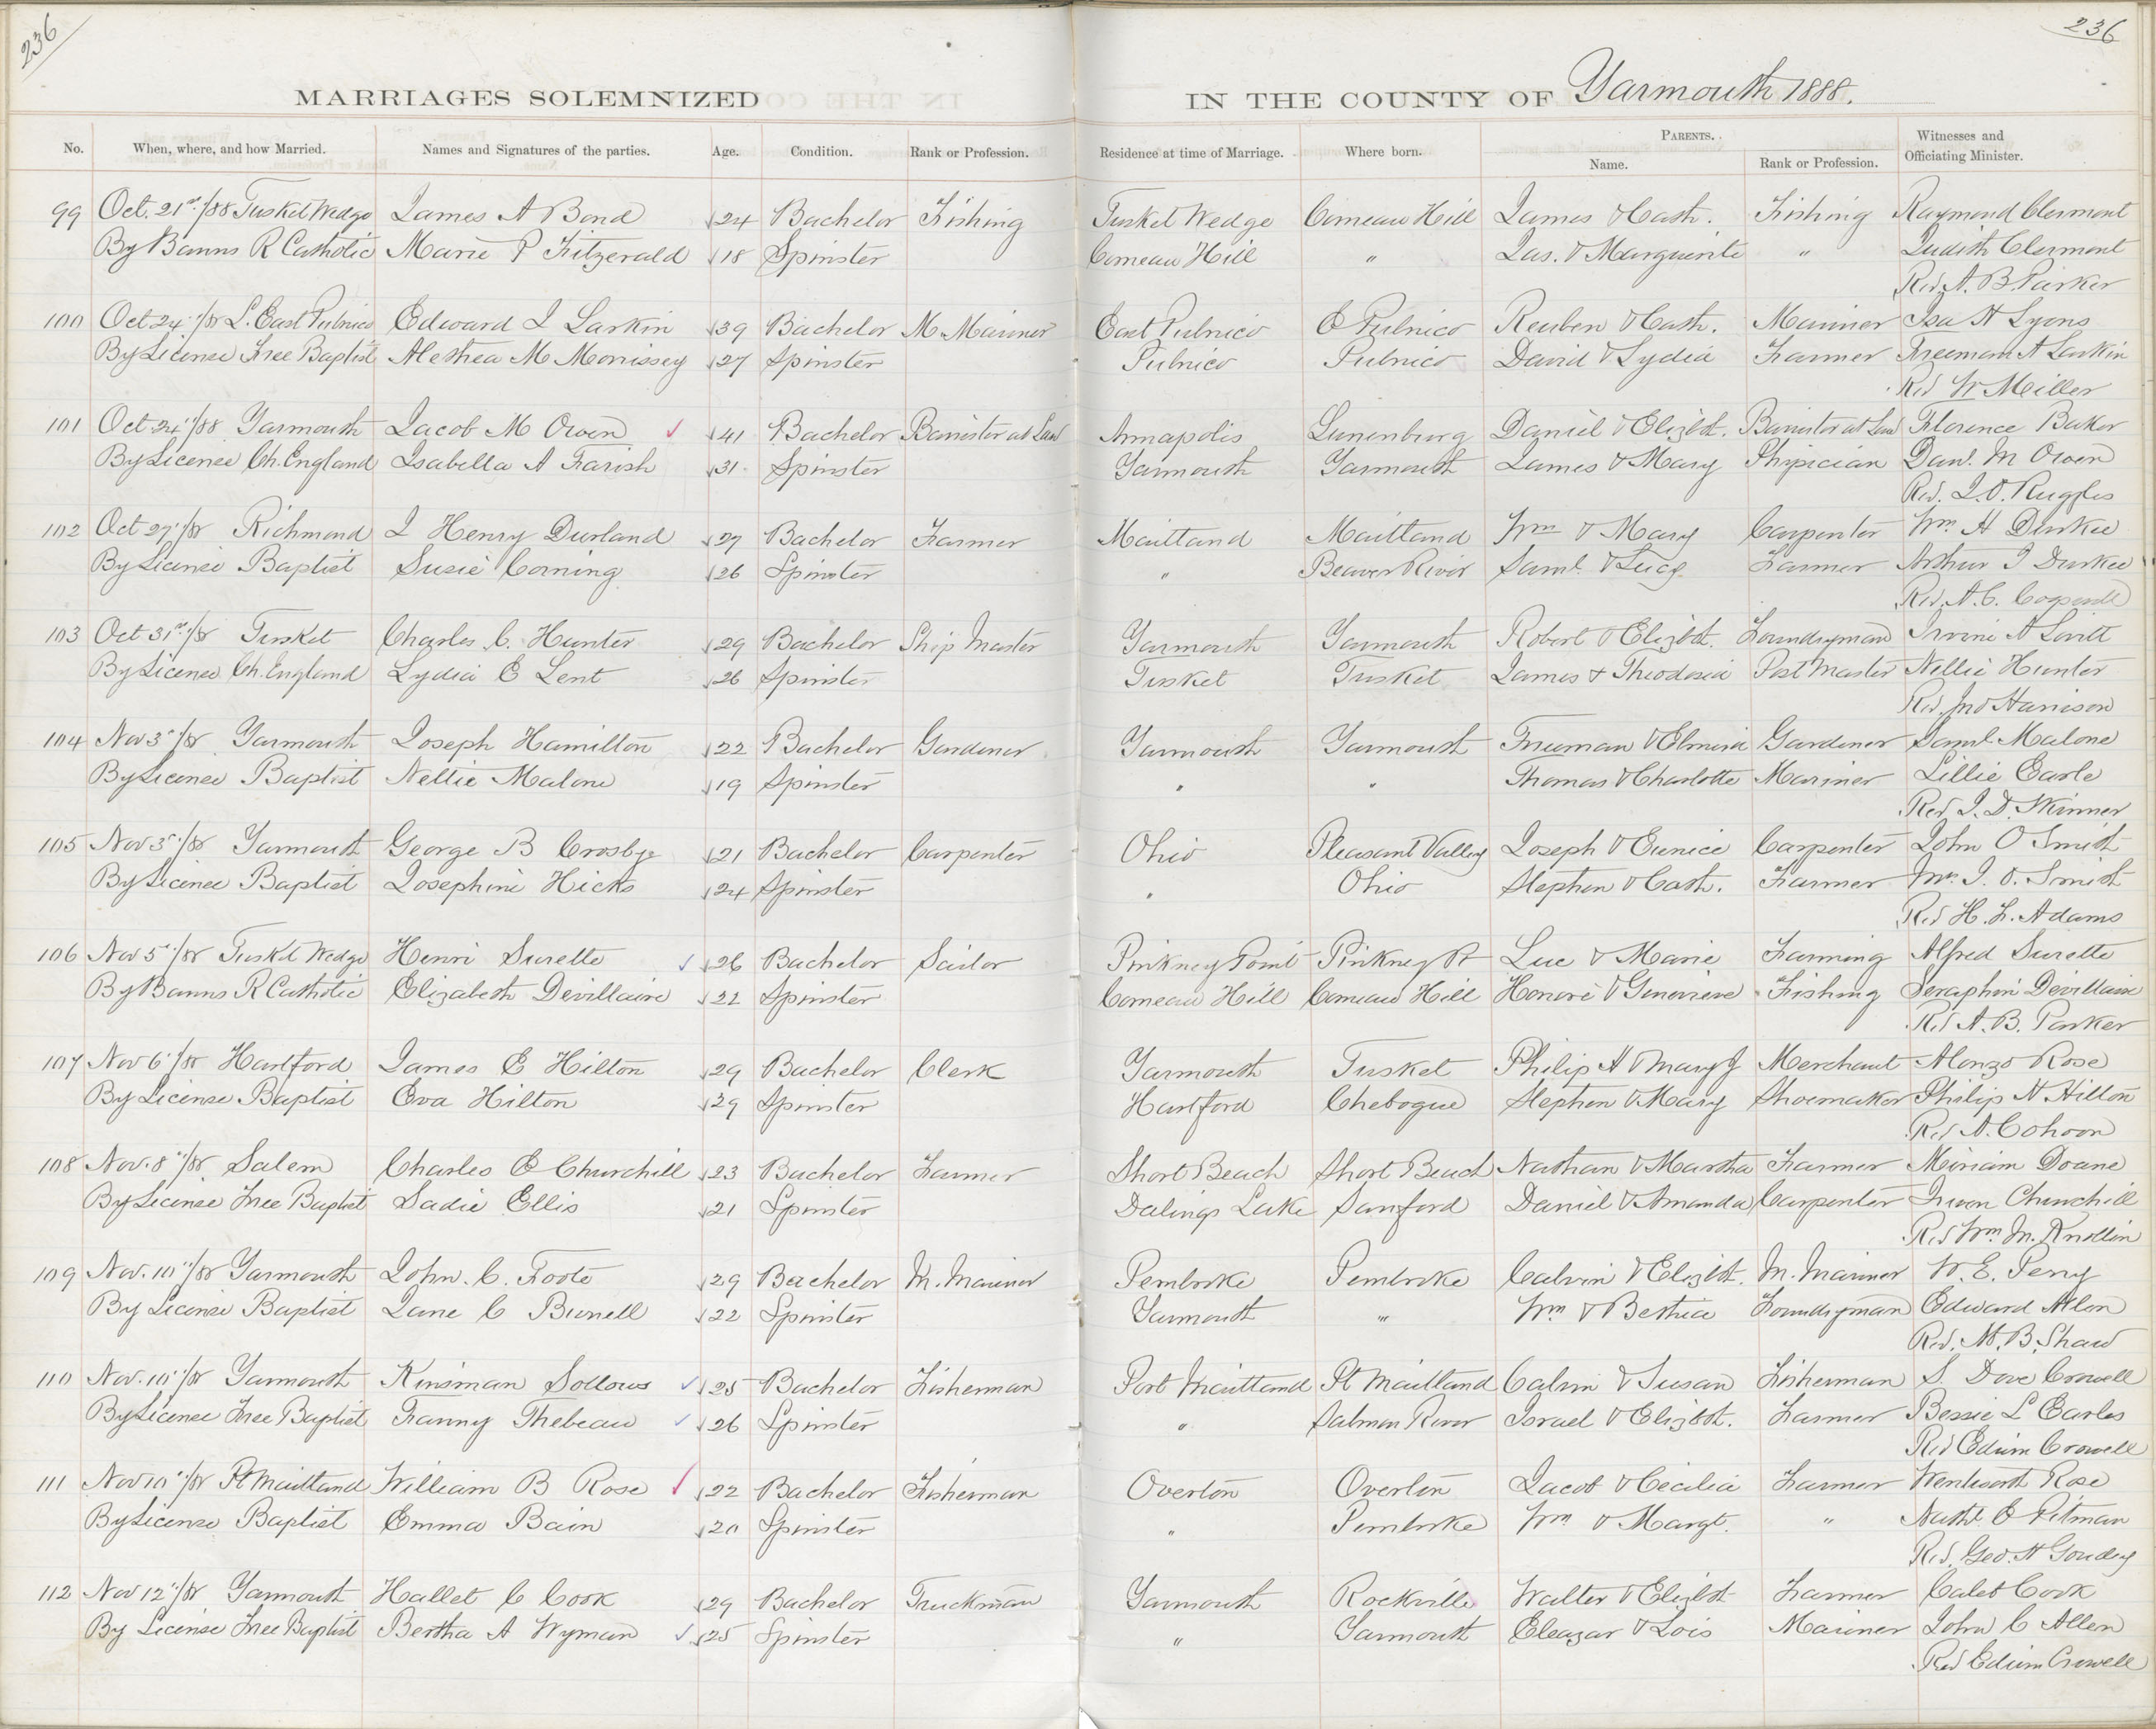 236
236
MARRIAGES SOLEMNIZED IN THE COUNTY OF Yarmouth 1888.
No. When, where, and how Married. Names and Signatures of the parties. Age. Condition. Rank or Profession. Residence at time of Marriage. Where born. PARENTS. Name. Rank or Profession. Witnesses and Officiating Minister.
99 Oct. 21st/88 Tusket Wedge James A Bond 24 Bachelor Fishing Tusket Wedge Comeau Hill James & Cath. Fishing Raymond Clermont
By Banns R Catholic Marie P Fitzgerald 18 Spinster Comeau Hill " Jas. & Marguerite " Judith Clermont
Rev. A. B. Parker
100 Oct 24"/88 L. East Pubnico Edward I Larkin 39 Bachelor M. Mariner East Pubnico E Pubnico Reuben & Cath. Mariner Isa H Lyons
By License Free Baptist Alethea M Morrissey 27 Spinster Pubnico Pubnico David & Lydia Farmer Freeman A Larkin
Rev W Miller
101 Oct 24"/88 Yarmouth Jacob M Owen 41 Bachelor Barrister at Law Annapolis Lunenburg Daniel & Elizbt. Barrister at Law Florence Baker
By License Ch. England Isabella A Farish 31 Spinster Yarmouth Yarmouth James & Mary Physician Danl. M Owen
Rev. J. O. Ruggles
102 Oct 27"/88 Richmond J Henry Durland 27 Bachelor Farmer Maitland Maitland Wm & Mary Carpenter Wm. H Durkee
By License Baptist Susie Corning 26 Spinster " Beaver River Saml. & Lucy Farmer Arthur J Durkee
Rev. A. C.
103 Oct 31st/88 Tusket Charles C. Hunter 29 Bachelor Ship Master Yarmouth Yarmouth Robert & Elizbt. Foundryman Irvine A Lovitt
By License Ch. England Lydia E Lent 26 Spinster Tusket Tusket James & Theodosia Post Master Nellie Hunter
Rev. Jno Harrison
104 Nov 3"/88 Yarmouth Joseph Hamilton 22 Bachelor Gardener Yarmouth Yarmouth Freeman & Elmira Gardener Saml. Malone
By License Baptist Nellie Malone 19 Spinster " " Thomas & Charlotte Mariner Lillie Earle
Rev. J. D. Skinner
105 Nov 3"/88 Yarmouth George B Crosby 21 Bachelor Carpenter Ohio Pleasant Valley Joseph & Eunice Carpenter John O Smith
By License Baptist Josephine Hicks 24 Spinster " Ohio Stephen & Cath. Farmer Mrs. J. O. Smith
Rev H. F. Adams
106 Nov 5"/88 Tusket Wedge Henri Surette 26 Bachelor Sailor Pinkney Point Pinkney Pt Luc & Marie Farming Alfred Surette
By Banns R Catholic Elizabeth Devillaire 22 Spinster Comeau Hill Comeau Hill Honore & Genevieve Fishing Seraphin Devillaire
Rev A. B. Parker
107 Nov 6"/88 Hartford James E Hilton 29 Bachelor Clerk Yarmouth Tusket Philip H & Mary J Merchant Alonzo Rose
By License Baptist Eva Hilton 29 Spinster Hartford Chebogue Stephen & Mary Shoemaker Philip N Hilton
Rev A. Cohoon
108 Nov. 8"/88 Salem Charles E Churchill 23 Bachelor Farmer Short Beach Short Beach Nathan & Martha Farmer Miriam Doane
By License Free Baptist Sadie Ellis 21 Spinster Dalings Lake Sanford Daniel & Amanda Carpenter Churchill
Rev Wm. M. Knollin
109 Nov. 10"/88 Yarmouth John. C. Foote 29 Bachelor M. Mariner Pembroke Pembroke Calvin & Elizbt. M. Mariner W. E. Perry
By License Baptist Jane C Burrell 22 Spinster Yarmouth " Wm. & Bethia Foundryman Edward Allen
Rev. M. B. Shaw
110 Nov. 10"/88 Yarmouth Kinsman Sollows 25 Bachelor Fisherman Port Maitland Pt Maitland Calvin & Susan Fisherman S. Dove Crowell
By License Free Baptist Fanny Thebeau 26 Spinster " Salmon River Israel & Elizbt. Farmer Bessie L Earles
Rev Edwin Crowell
111 Nov 10"/88 Pt Maitland William B Rose 22 Bachelor Fisherman Overton Overton Jacob & Cecilia Farmer Wentworth Rose
By License Baptist Emma Bain 20 Spinster " Pembroke Wm & Margt. " Nathl E Pitman
Rev. Geo. H Goudey
112 Nov 12"/88 Yarmouth Hallet C Cook 29 Bachelor Truckman Yarmouth Rockville Walter & Elizbt Farmer Caleb Cook
By License Free Baptist Bertha A Wyman 25 Spinster " Yarmouth Eleazar & Lois Mariner John C Allen
Rev Edwin Crowell